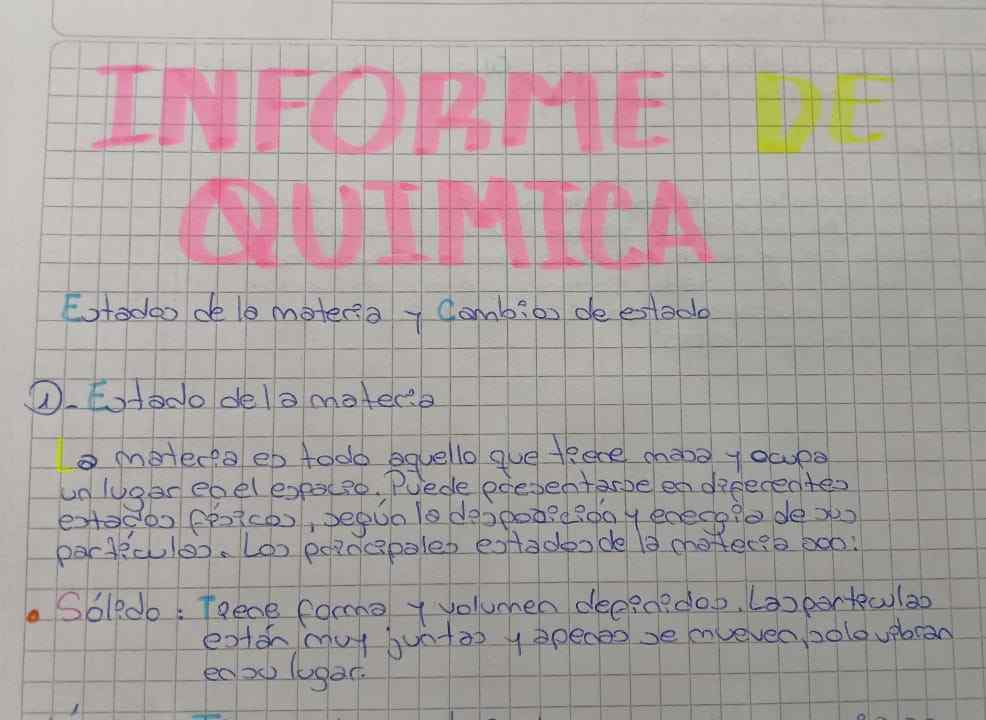 INFORME DE
QUIMICA
Estados de la materia y Cambios de estado
1.- Estado de la materia
La materia es todo aquello que tiene masa y ocupa
un lugar en el espacio. Puede presentarse en diferentes
estados físicos, según la desposición y energía de sus
partículas. Los principales estados de la materia son:
• Sólido: Tiene forma y volumen definidos. Las partículas
están muy juntas y apenas se mueven, solo vibran
en su lugar.